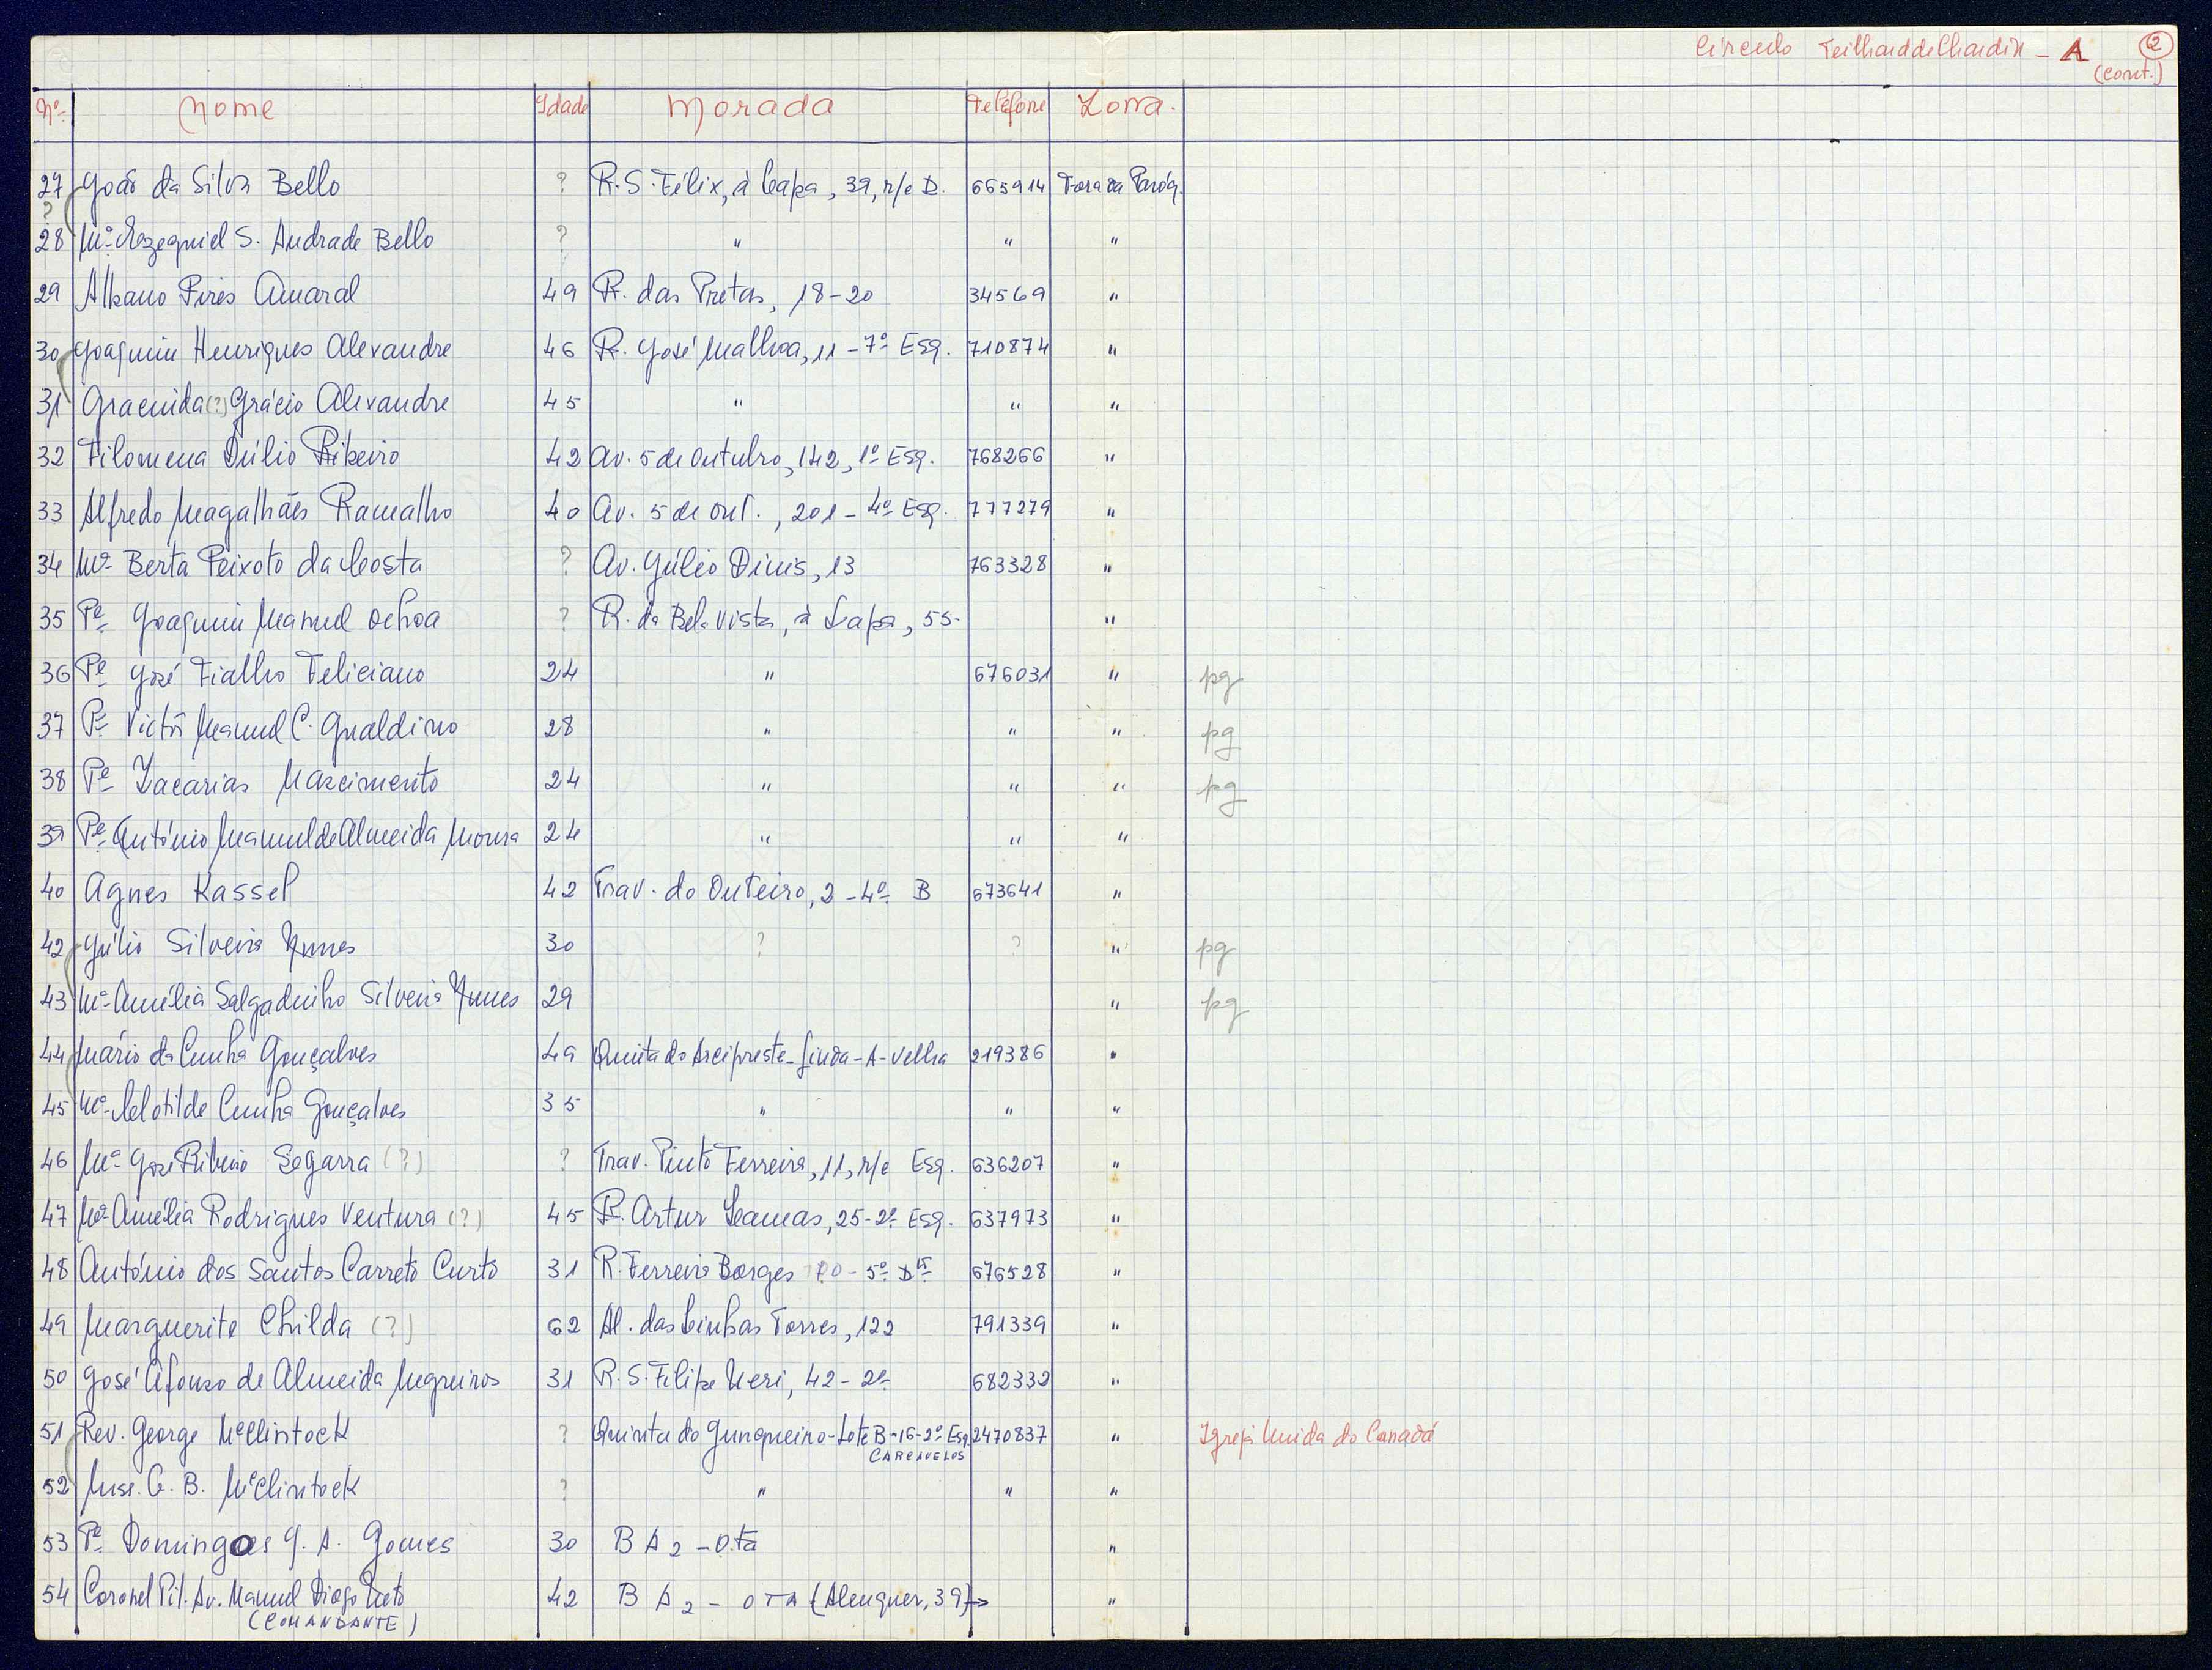 Círculo Teilhard de Chardin - A 2
(cont.)
Nº Nome Idade Morada Teléfone Zona.
27 João da Silva Bello ? R. S. Félix, à Lapa, 39, r/c D. 665914 Fora da Paróq.
?
28 Mª Ezequiel S. Andrade Bello ? " " "
29 Albano Pires Amaral 49 R. das Pretas, 18-20 34569 "
30 Joaquim Henriques Alexandre 46 R. José Malhoa, 11 - 7º Esq. 710874 "
31 Gracinda (?) Grácio Alexandre 45 " " "
32 Filomena Dúlio Ribeiro 42 Av. 5 de Outubro, 142, 1º Esq. 768266 "
33 Alfredo Magalhães Ramalho 40 Av. 5 de Out., 201 - 4º Esq. 777279 "
34 Mª Berta Peixoto da Costa ? Av. Júlio Dinis, 13 763328 "
35 Pe Joaquim Manuel Ochoa ? R. da Bela Vista, à Lapa, 55- "
36 Pe José Fialho Feliciano 24 " 676031 " pg
37 Pe Victor Manuel C. Gualdino 28 " " " pg
38 Pe Zacarias Nascimento 24 " " " pg
39 Pe António Manuel de Almeida Moura 24 " " "
40 Agnes Kassel 42 Trav. do Outeiro, 2 - 4º B 673641 "
42 Júlio Silveira Nunes 30 ? ? " pg
43 Mª Amélia Salgadinho Silveira Nunes 29 " pg
44 Mário da Cunha Gonçalves 49 Quinta do Arcipreste - Linda-A-Velha 219386 "
45 Mª Clotilde Cunha Gonçalves 35 " " "
46 Mª José Ribeiro Segarra (?) ? Trav. Pinto Ferreira, 11, r/c Esq. 636207 "
47 Mª Amélia Rodrigues Ventura (?) 45 R. Artur Lamas, 25-2º Esq. 637973 "
48 António dos Santos Carreto Curto 31 R. Ferreira Borges - 5º Dtº 676528 "
49 Marguerite Childa (?) 62 Al. das Linhas Torres, 122 791339 "
50 José Afonso de Almeida Negreiros 31 R. S. Filipe Neri, 42 - 2º 682332 "
51 Rev. George McClintock ? Quinta do Junqueiro - Lote B-16-2º Esq. 2470837 " Igreja Unida do Canadá
CARCAVELOS
52 G. B. McClintock ? " " "
53 Pe Domingos J. A. Gomes 30 B A 2 - Ota "
54 Coronel Pil. Av. Manuel Diogo Neto 42 B A 2 - OTA (Alenquer, 39) → "
(COMANDANTE)